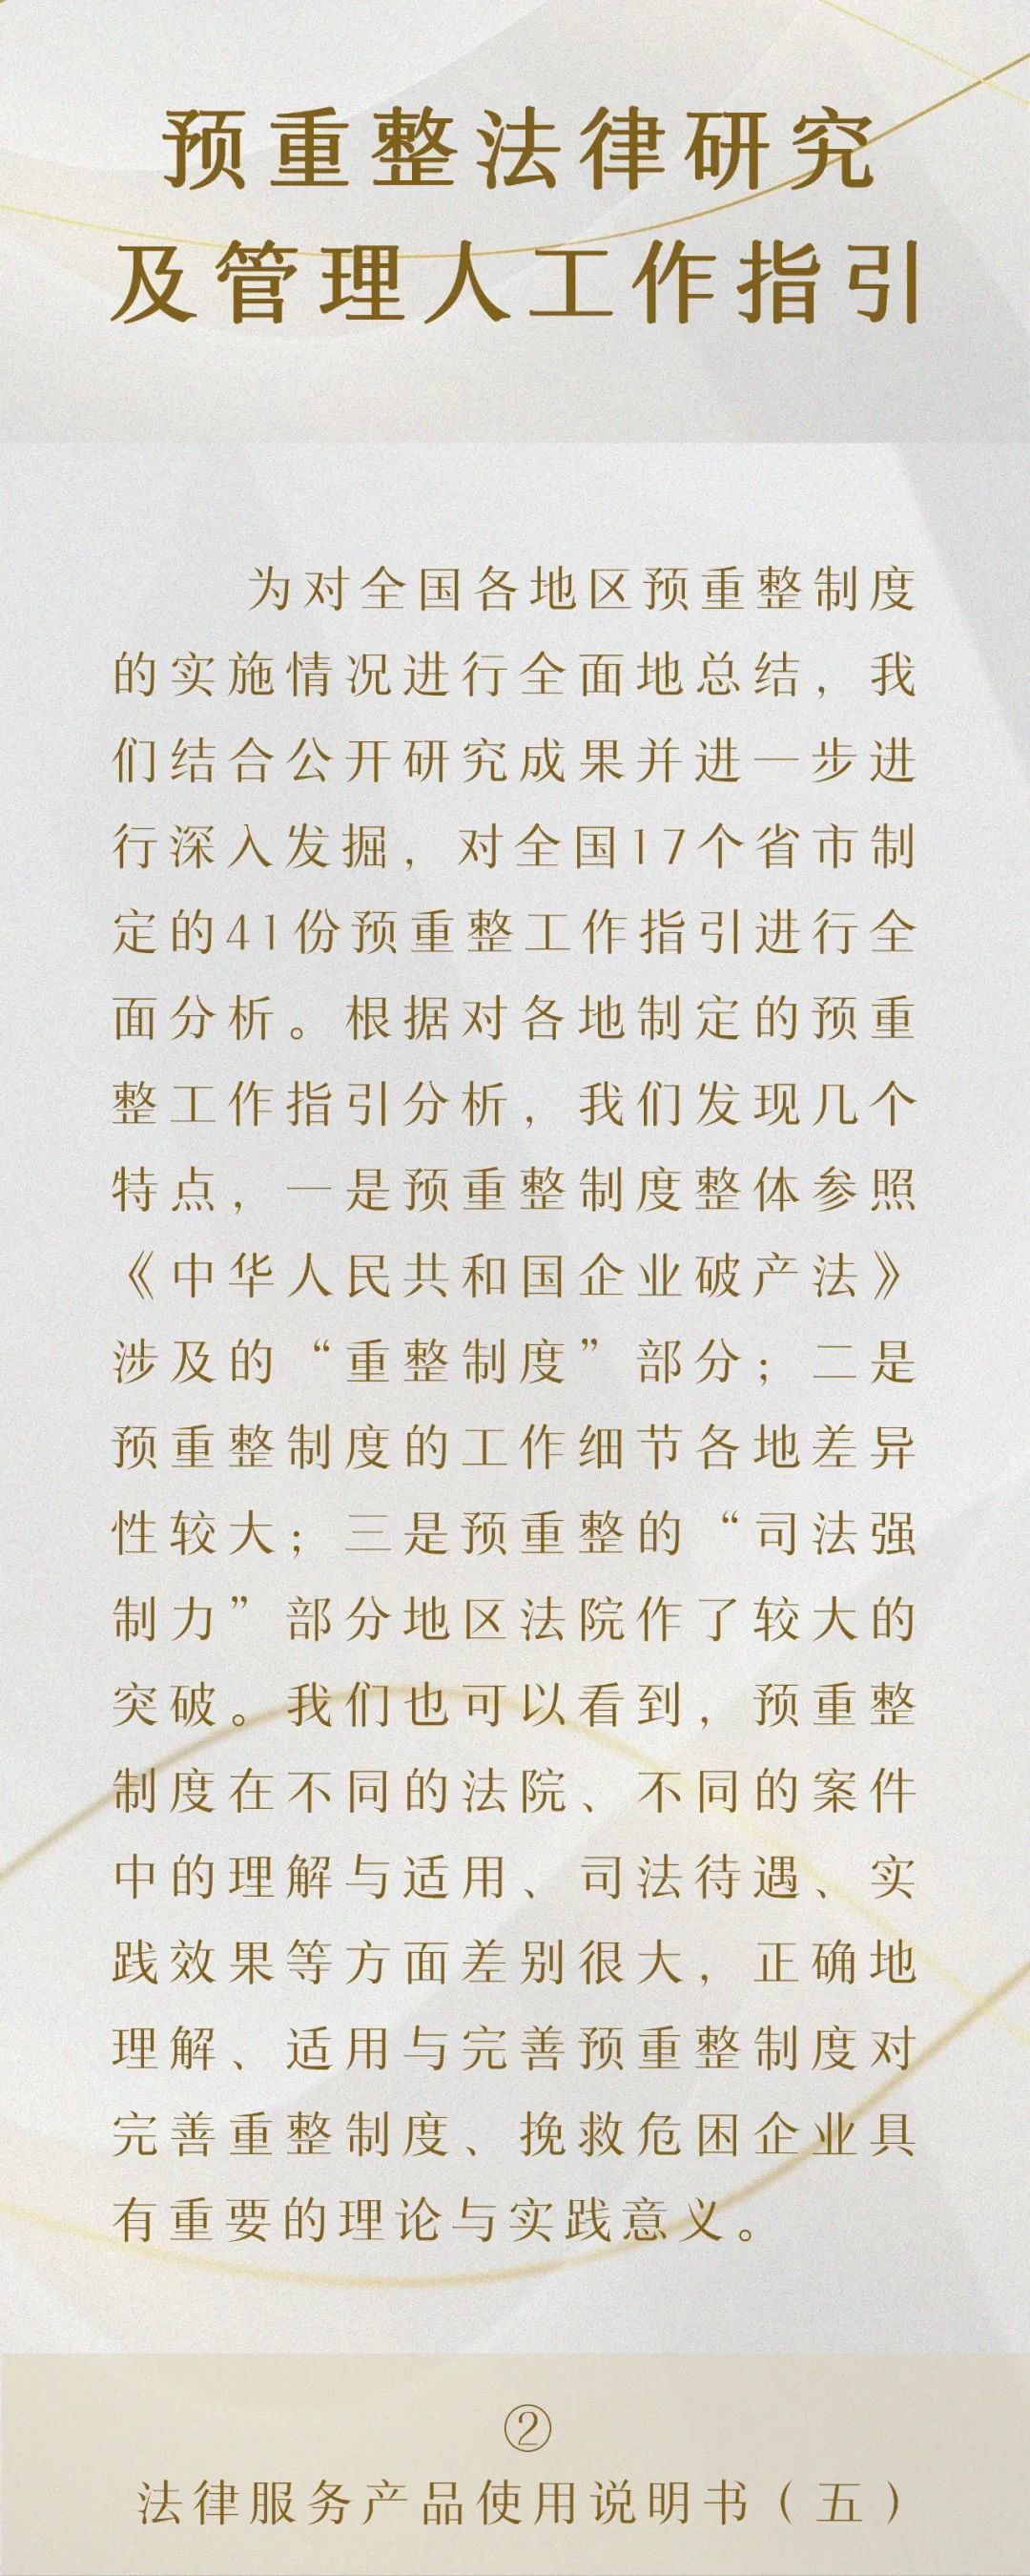 预重整法律研究
及管理人工作指引
为对全国各地区预重整制度
的实施情况进行全面地总结，我
们结合公开研究成果并进一步进
行深入发掘，对全国17个省市制
定的41份预重整工作指引进行全
面分析。根据对各地制定的预重
整工作指引分析，我们发现几个
特点，一是预重整制度整体参照
《中华人民共和国企业破产法》
涉及的“重整制度”部分；二是
预重整制度的工作细节各地差异
性较大；三是预重整的“司法强
制力”部分地区法院作了较大的
突破。我们也可以看到，预重整
制度在不同的法院、不同的案件
中的理解与适用、司法待遇、实
践效果等方面差别很大，正确地
理解、适用与完善预重整制度对
完善重整制度、挽救危困企业具
有重要的理论与实践意义。
②
法律服务产品使用说明书（五）